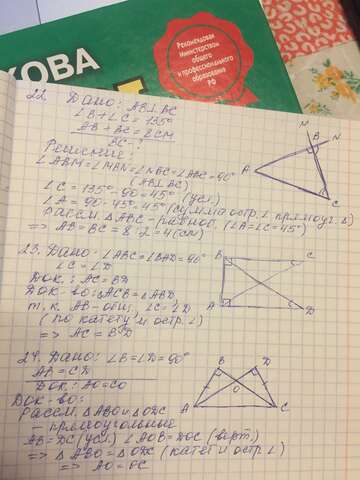 КОВА
Рекомендован
Министерством
общего
и профессионального
образования
РФ
22. Дано: AB⊥BC
∠B+∠C = 135°
AB + BC = 8 см
BC - ?
Решение:
∠ABM=∠MBN=∠NBC=∠ABC=90°
(AB⊥BC)
∠C = 135°-90=45° (усл.)
∠A = 90-45=45° (сумма остр. ∠ прямоуг. Δ)
Рассм. ΔABC - равноб. (∠A=∠C=45°)
=> AB = BC = 8:2=4 (см)
N
N
B
A
C
23. Дано - ∠ABC=∠BAD=90°
∠C = ∠D
Док.: AC=BD
Док-во: ΔACB=ΔABD
т.к. AB-общ, ∠C=∠D
(по катету и остр. ∠)
=> AC = BD
B
C
A
D
24. Дано: ∠B=∠D=90°
AB = CD
Док.: AO=CO
Док-во:
Рассм. ΔABO и ΔODC
- прямоугольные
AB=DC (усл.) ∠AOB=DOC (верт.)
=> ΔABO=ΔODC (катет и остр. ∠)
=> AO = OC
B
D
O
A
C